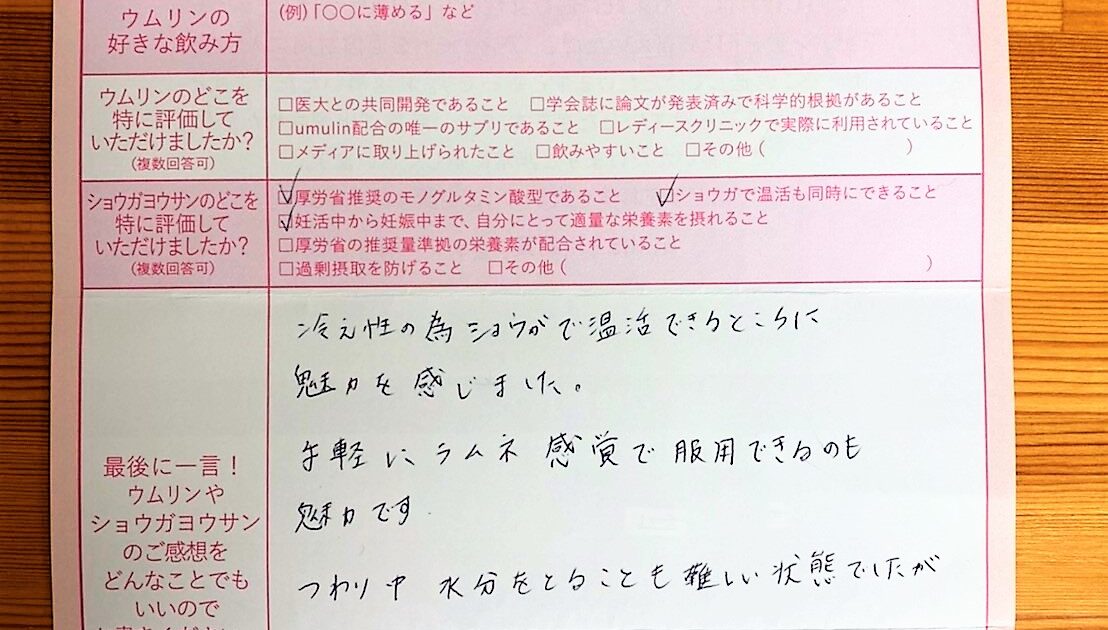 ウムリンの
好きな飲み方
(例)「〇〇に薄める」など
ウムリンのどこを
特に評価して
いただけましたか?
(複数回答可)
□医大との共同開発であること □学会誌に論文が発表済みで科学的根拠があること
□umulin配合の唯一のサプリであること □レディースクリニックで実際に利用されていること
□メディアに取り上げられたこと □飲みやすいこと □その他( )
ショウガヨウサンのどこを
特に評価して
いただけましたか?
(複数回答可)
☑厚労省推奨のモノグルタミン酸型であること ☑ショウガで温活も同時にできること
☑妊活中から妊娠中まで、自分にとって適量な栄養素を摂れること
□厚労省の推奨量準拠の栄養素が配合されていること
□過剰摂取を防げること □その他( )
最後に一言!
ウムリンや
ショウガヨウサン
のご感想を
どんなことでも
いいので
冷え性の為ショウガで温活できるところに
魅力を感じました。
手軽に、ラムネ感覚で服用できるのも
魅力です
つわり中 水分をとることも難しい状態でしたが